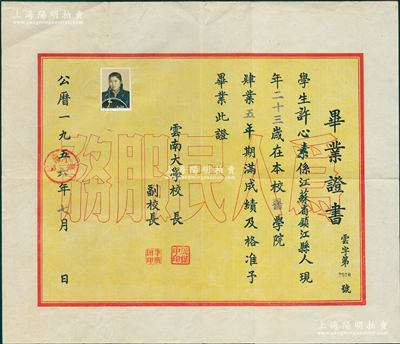 上海陽明拍賣
畢業證書
雲字第 號
學生許心素係江蘇省鎮江縣人現
年二十三歲在本校醫學院
肄業五年期滿成績及格准予
畢業此證
雲南大學校長
副校長
公曆一九五六年七月 日
為人民服務
上海陽明拍賣